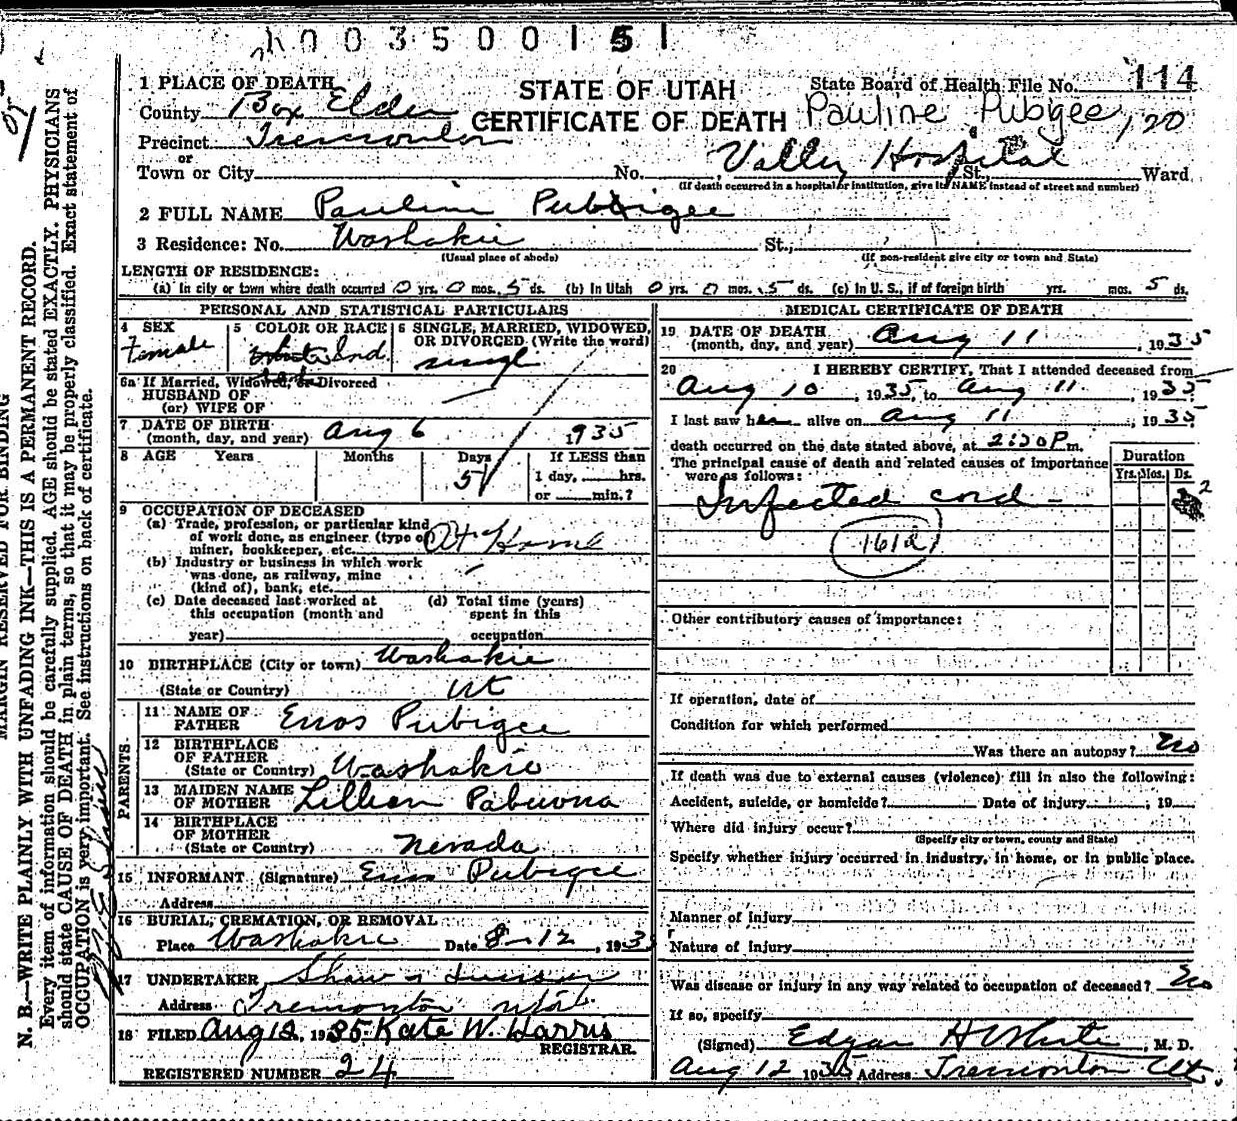 003500151
1 PLACE OF DEATH
County Box Elder
Precinct Tremonton
or
Town or City
STATE OF UTAH
CERTIFICATE OF DEATH
State Board of Health File No. 114
Pauline Pubigee, 120
No. Valley Hospital St., Ward
(If death occurred in a hospital or institution, give its NAME instead of street and number)
2 FULL NAME Paulin Pubigee
3 Residence: No. Washakie St.,
(Usual place of abode) (If non-resident give city or town and State)
LENGTH OF RESIDENCE:
(a) In city or town where death occurred 0 yrs. 0 mos. 5 ds. (b) In Utah 0 yrs. 0 mos. 5 ds. (c) In U. S., if of foreign birth yrs. mos. 5 ds.
PERSONAL AND STATISTICAL PARTICULARS
4 SEX Female
5 COLOR OR RACE Ind.
6 SINGLE, MARRIED, WIDOWED, OR DIVORCED (Write the word)
single
6a If Married, Widowed, or Divorced
HUSBAND OF
(or) WIFE OF
7 DATE OF BIRTH
(month, day, and year) Aug 6 1935
8 AGE Years Months Days If LESS than
5 1 day, hrs.
or min.?
9 OCCUPATION OF DECEASED
(a) Trade, profession, or particular kind
of work done, as engineer (type of
miner, bookkeeper, etc. At Home
(b) Industry or business in which work
was done, as railway, mine
(kind of), bank, etc.
(c) Date deceased last worked at
this occupation (month and
year)
(d) Total time (years)
spent in this
occupation
10 BIRTHPLACE (City or town) Washakie
(State or Country) Ut
PARENTS
11 NAME OF
FATHER Enos Pubigee
12 BIRTHPLACE
OF FATHER
(State or Country) Washakie
13 MAIDEN NAME
OF MOTHER Lillian
14 BIRTHPLACE
OF MOTHER
(State or Country) Nevada
15 INFORMANT (Signature) Enos Pubigee
Address
16 BURIAL, CREMATION, OR REMOVAL
Place Washakie Date 8-12, 1935
17 UNDERTAKER Shaw
Address Tremonton Utah
18 FILED Aug 12, 1935 Kate W. Harris
REGISTRAR.
REGISTERED NUMBER 24
MEDICAL CERTIFICATE OF DEATH
19 DATE OF DEATH
(month, day, and year) Aug 11, 1935
20 I HEREBY CERTIFY, That I attended deceased from
Aug 10, 1935, to Aug 11, 1935
I last saw her alive on Aug 11, 1935
death occurred on the date stated above, at 2:20 P m.
The principal cause of death and related causes of importance
were as follows:
Duration
Yrs. Mos. Ds.
Infected cord - 2
161a
Other contributory causes of importance:
If operation, date of
Condition for which performed
Was there an autopsy? No
If death was due to external causes (violence) fill in also the following:
Accident, suicide, or homicide? Date of injury , 19
Where did injury occur?
(Specify city or town, county and State)
Specify whether injury occurred in industry, in home, or in public place.
Manner of injury
Nature of injury
Was disease or injury in any way related to occupation of deceased? No
If so, specify
(Signed) Edgar H White, M. D.
Aug 12 1935 Address Tremonton Ut.
MARGIN RESERVED FOR BINDING
N. B.—WRITE PLAINLY WITH UNFADING INK—THIS IS A PERMANENT RECORD.
Every item of information should be carefully supplied. AGE should be stated EXACTLY. PHYSICIANS
should state CAUSE OF DEATH in plain terms, so that it may be properly classified. Exact statement of
OCCUPATION is very important. See instructions on back of certificate.